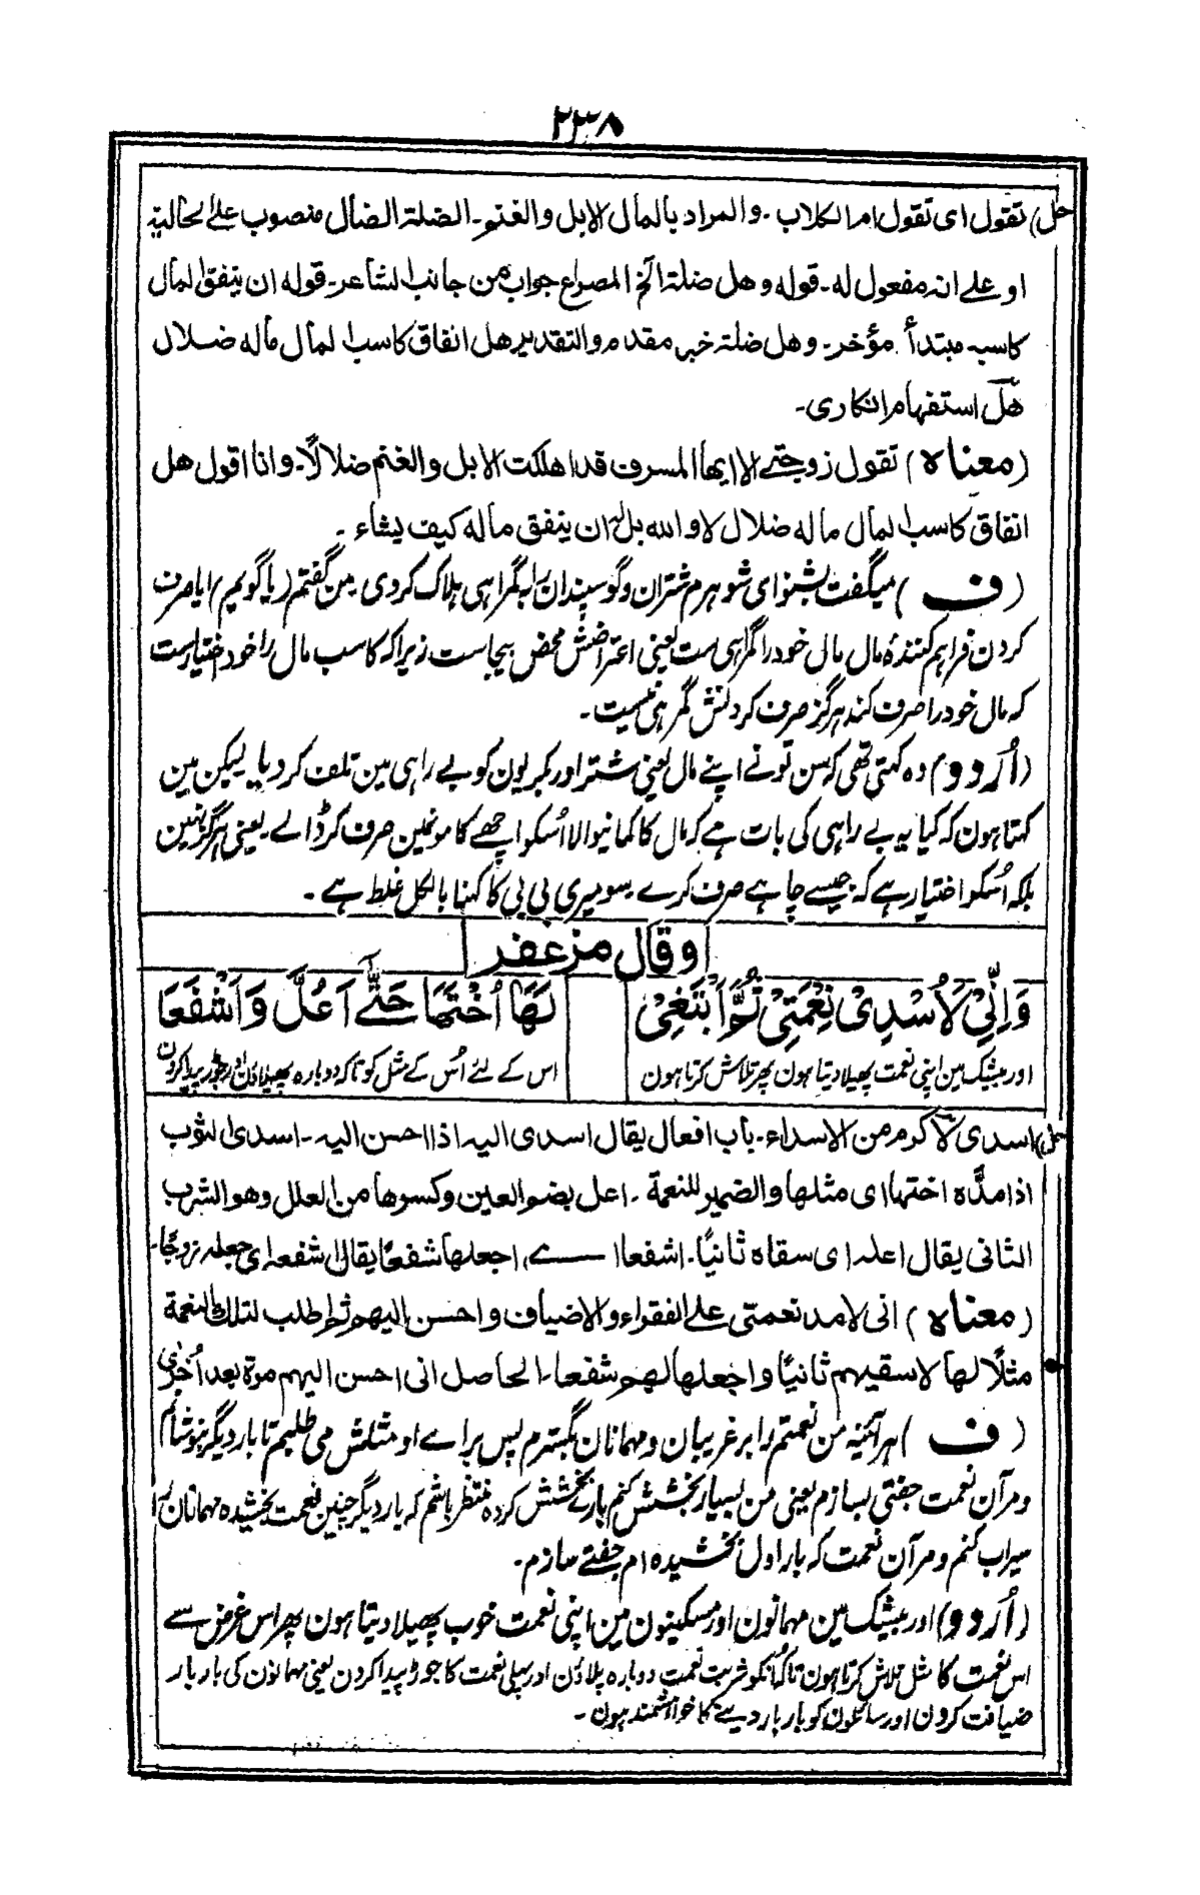 ۲۳۸
حل) تقول ای تقول ام الکلاب۔ والمراد بالمال الابل والغنم۔ الضلة الضال منصوب علی الحالیة
او علی انہ مفعول لہ۔ قولہ وھل ضلة الخ المصراع جواب من جانب الشاعر۔ قولہ ان ینفق المال
کاسبہ مبتدأ مؤخر۔ وھل ضلة خبر مقدم والتقدیر ھل انفاق کاسب المال مالہ ضلال
ھل استفہام انکاری۔
(معناہ) تقول زوجتی الا ایھا المسرف قد اھلکت الابل والغنم ضلالاً۔ وانا اقول ھل
انفاق کاسب المال مالہ ضلال لا واللہ بل لہ ان ینفق مالہ کیف یشاء۔
(ف) میگفت بشنو ای شوہرم شتران وگوسپندان را بگمراہی ہلاک کردی۔ من گفتم (یا گویم) ایا صرف
کردن فراہم کنندۂ مال مال خود را گمراہی ست یعنی اعتراضش محض بیجاست زیرا کہ کاسب مال را خود اختیارست
کہ مال خود را صرف کند ہرگز صرف کردنش گمرہی نیست۔
(اُردو) وہ کہتی تھی کہ سن تونے اپنے مال یعنی شتر اور بکریون کو بے راہی مین تلف کر دیا۔ لیکن مین
کہتا ہون کہ کیا یہ بے راہی کی بات ہے کہ مال کا کمانیوالا اُسکو اچھے کامونمین صرف کر ڈالے۔ یعنی ہرگز نہین
بلکہ اُسکو اختیار ہے کہ جیسے چاہے صرف کرے۔ سو میری بی بی کا کہنا بالکل غلط ہے۔
وقال مزعفر
وَاِنِّیْ لَاُسْدِیْ نِعْمَتِیْ ثُمَّ اَبْتَغِیْ لَهَا اُخْتَهَا حَتّٰی اَعُلَّ وَاَشْفَعَا
اور بیشک مین اپنی نعمت پھیلا دیتا ہون پھر تلاش کرتا ہون اس کے لئے اُس کے مثل کو تاکہ دوبارہ پھیلاؤن اور جوڑ پیدا کرون
حل) اسدی لاکرم من الاسداء۔ باب افعال یقال اسدی الیہ اذا احسن الیہ۔ اسدی الثوب
اذا مدّہ اختہا ای مثلہا والضمیر للنعمة۔ اعل بضم العین وکسرھا من العلل وھو الشرب
الثانی یقال اعلہ ای سقاہ ثانیًا۔ اشفعا ای اجعلہا شفعًا یقال اشفعہ ای جعلہ زوجًا۔
(معناہ) انی لامد نعمتی علی الفقراء والاضیاف واحسن الیھم ثم اطلب لتلک النعمة
مثلًا لہا لاسقیھم ثانیًا واجعلہا لھم شفعا۔ الحاصل انی احسن الیھم مرة بعد اُخریٰ
(ف) ہر آئینہ من نعمتم را بر غریبان ومہمانان بگسترم پس برائے او مثلش می طلبم تا بار دیگر بنوشانم
ومر آن نعمت جفتی بسازم یعنی من بسیار بخشش کنم بارے بخشش کردہ منتظر باشم کہ بار دیگر چنین نعمت بخشیدہ مہمانان را
سیراب کنم ومر آن نعمت کہ بار اول بخشیدہ ام جفتے سازم۔
(اُردو) اور بیشک مین مہمانون اور مسکینون مین اپنی نعمت خوب پھیلا دیتا ہون پھر اس غرض سے
اس نعمت کا مثل تلاش کرتا ہون تاکہ اُنکو شربت نعمت دوبارہ پلاؤن اور پہلی نعمت کا جوڑ پیدا کردن یعنی مہمانون کی بار بار
ضیافت کرون اور سائلون کو بار بار دینے کا خواہشمند ہون۔